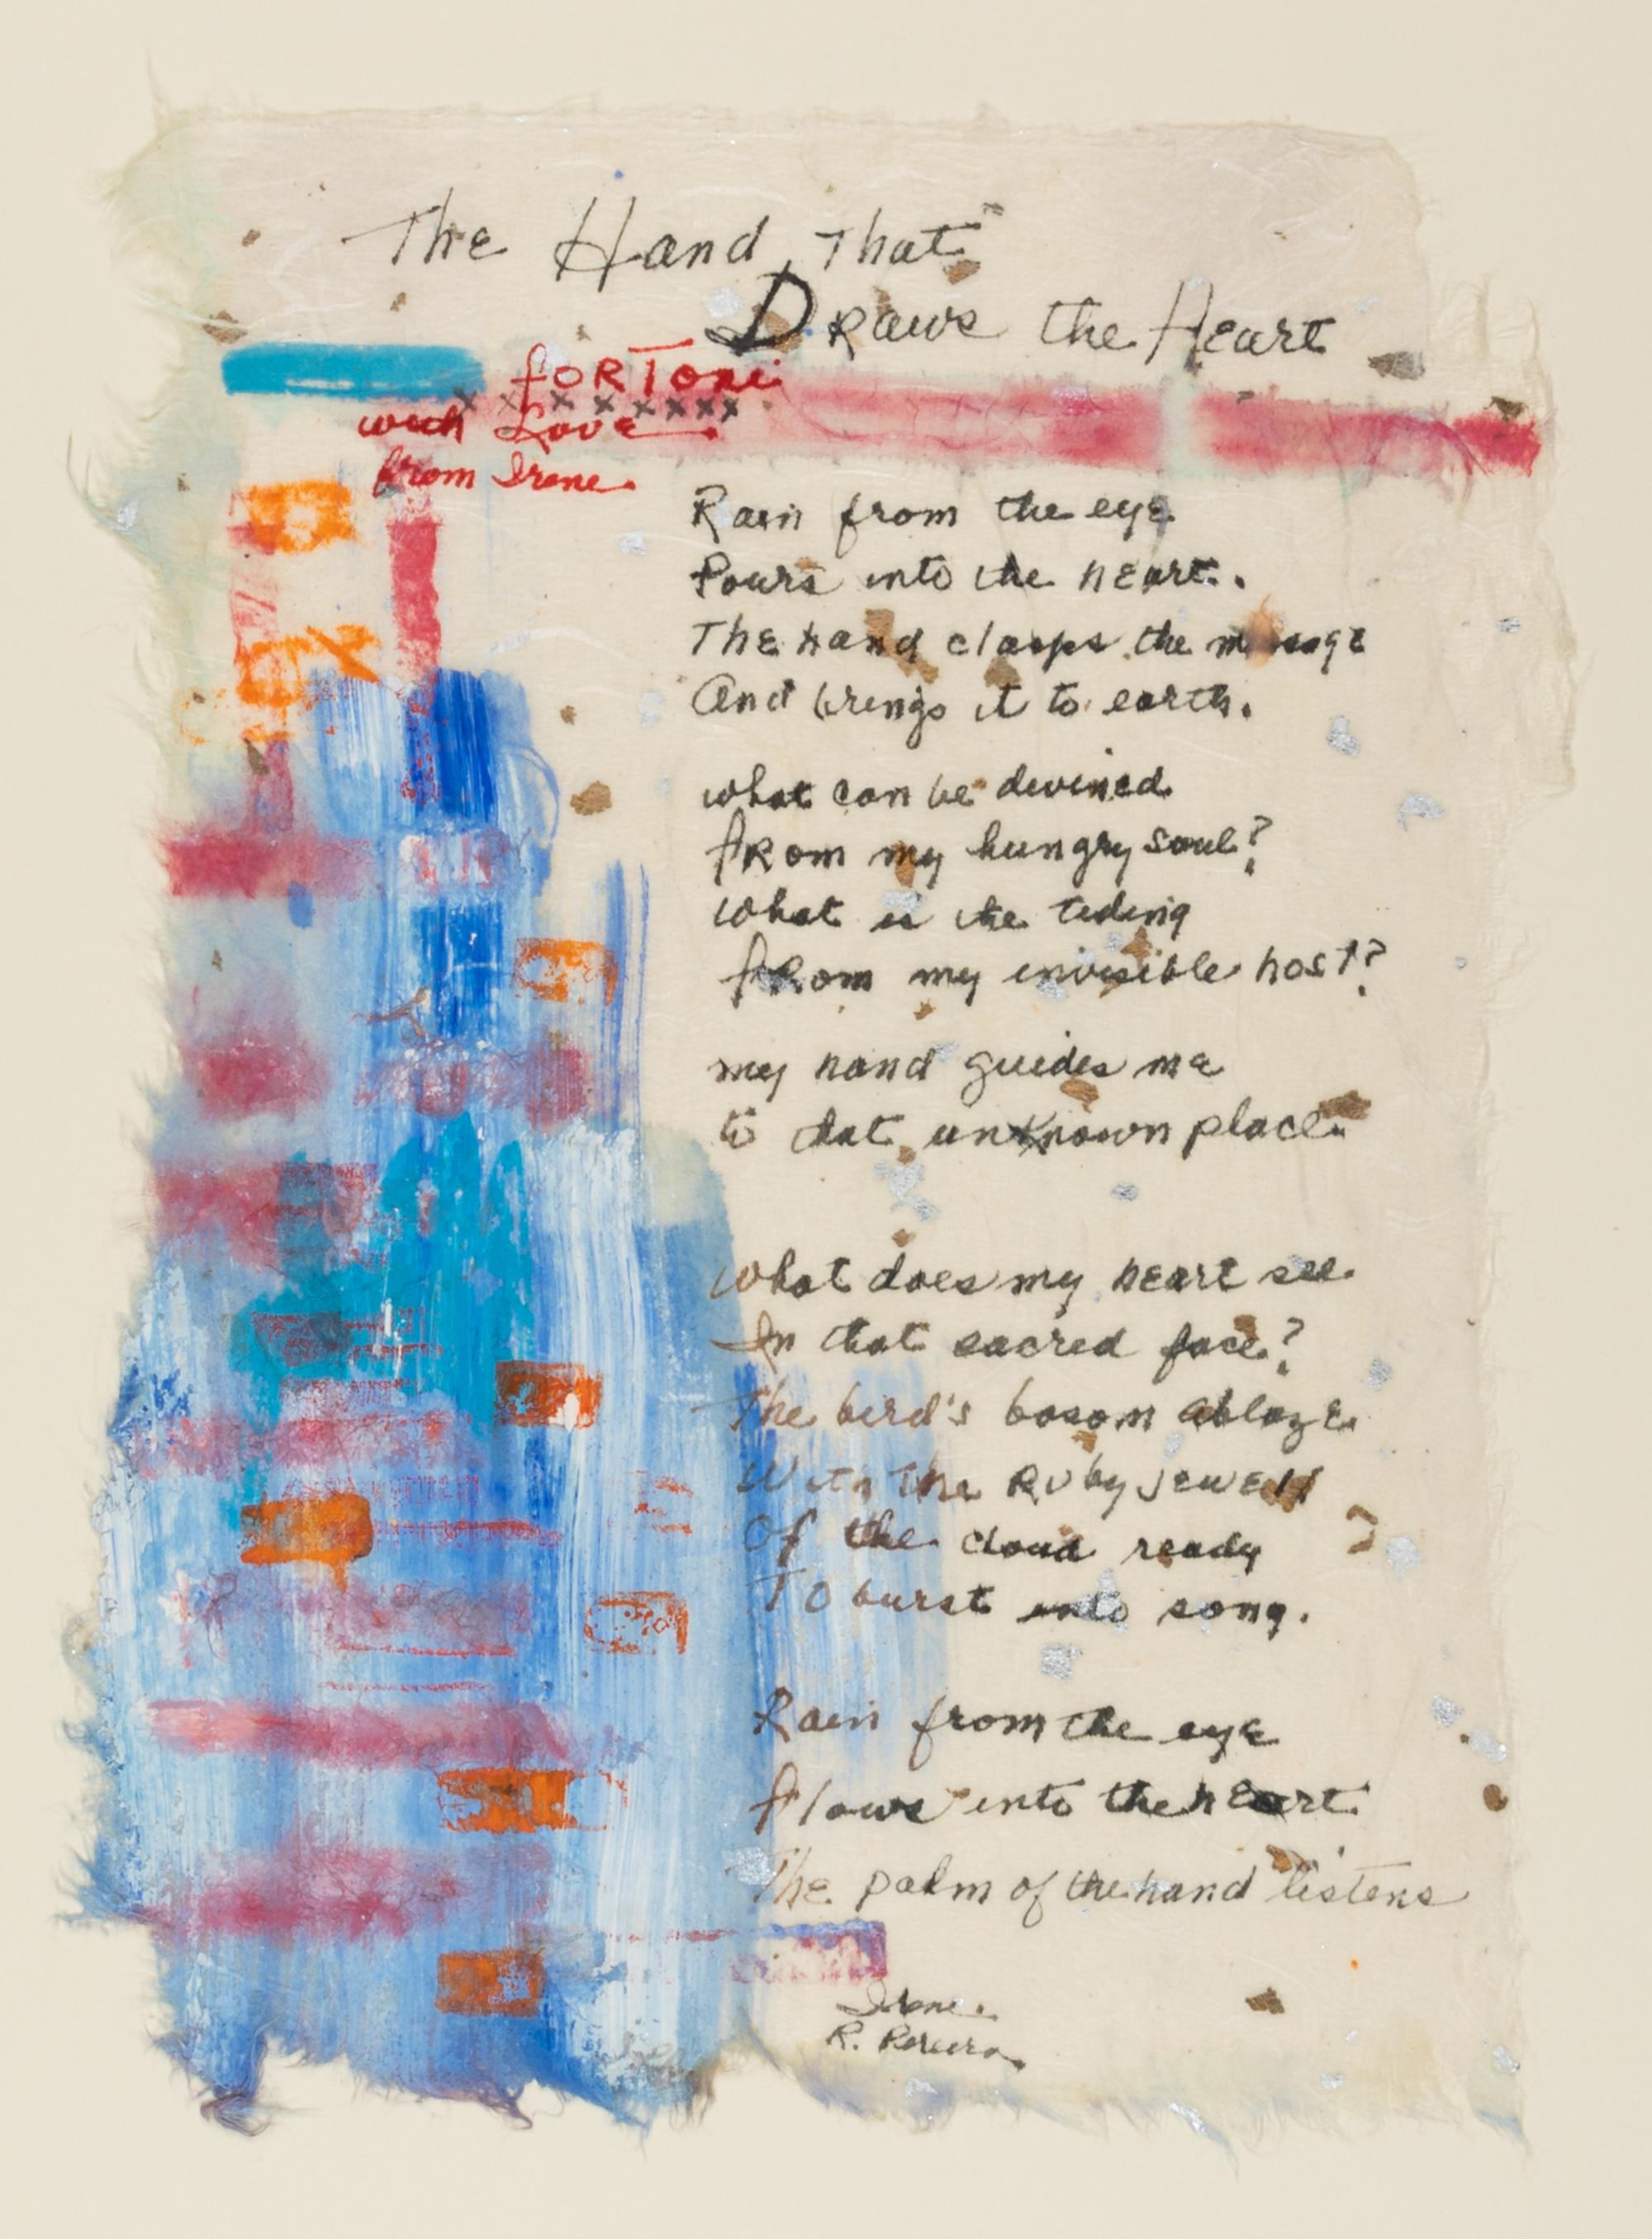 The Hand That
Draws the Heart
for Toni
x x x x x x x x
with Love
from Irene.
Rain from the eye
Pours into the heart.
The hand clasps the message
And brings it to earth.
what can be divined
from my hungry soul?
what is the tiding
from my invisible host?
my hand guides me
to that unknown place.
What does my heart see
In that sacred face?
The bird's bosom ablaze
With the Ruby jewell
Of the cloud ready
To burst into song.
Rain from the eye
flows into the heart
The palm of the hand listens
Irene.
R. Pereira